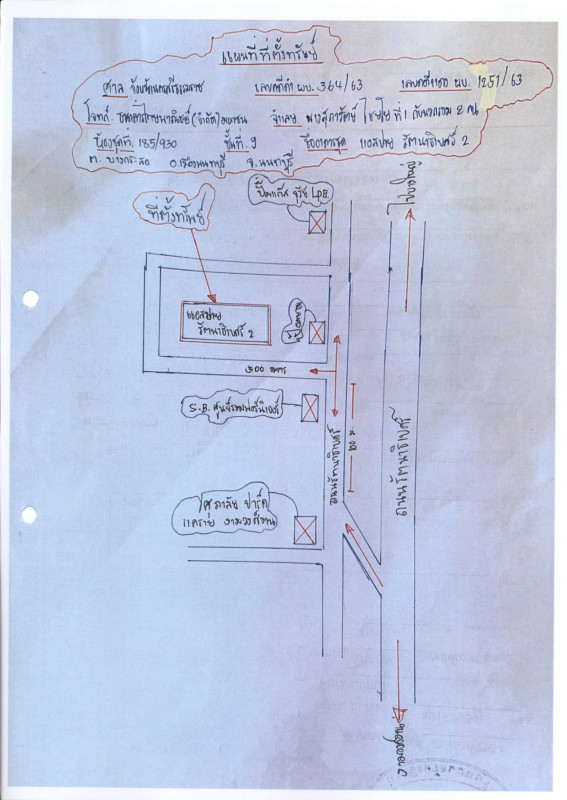 แผนที่ที่ตั้งทรัพย์
ศาล จังหวัดนครศรีธรรมราช เลขคดีดำ ผบ. 364/63 เลขคดีแดง ผบ. 1251/63
โจทก์ ธนาคารไทยพาณิชย์ (จำกัด) มหาชน จำเลย ที่ 1 กับพวกรวม 2 คน
ห้องชุดที่ 185/930 ชั้นที่ 9 ชื่ออาคารชุด แอสปาย รัตนาธิเบศร์ 2
ต. บางกระสอ อ.เมืองนนทบุรี จ. นนทบุรี
ที่ตั้งทรัพย์
ปั๊มแก๊ส LPG
ไปบางใหญ่
แอสปาย
รัตนาธิเบศร์ 2
300 เมตร
S.B. ศูนย์รวมเฟอร์นิเจอร์
50 ม.
ถนนรัตนาธิเบศร์
ศุภาลัย ปาร์ค
แคราย งามวงศ์วาน